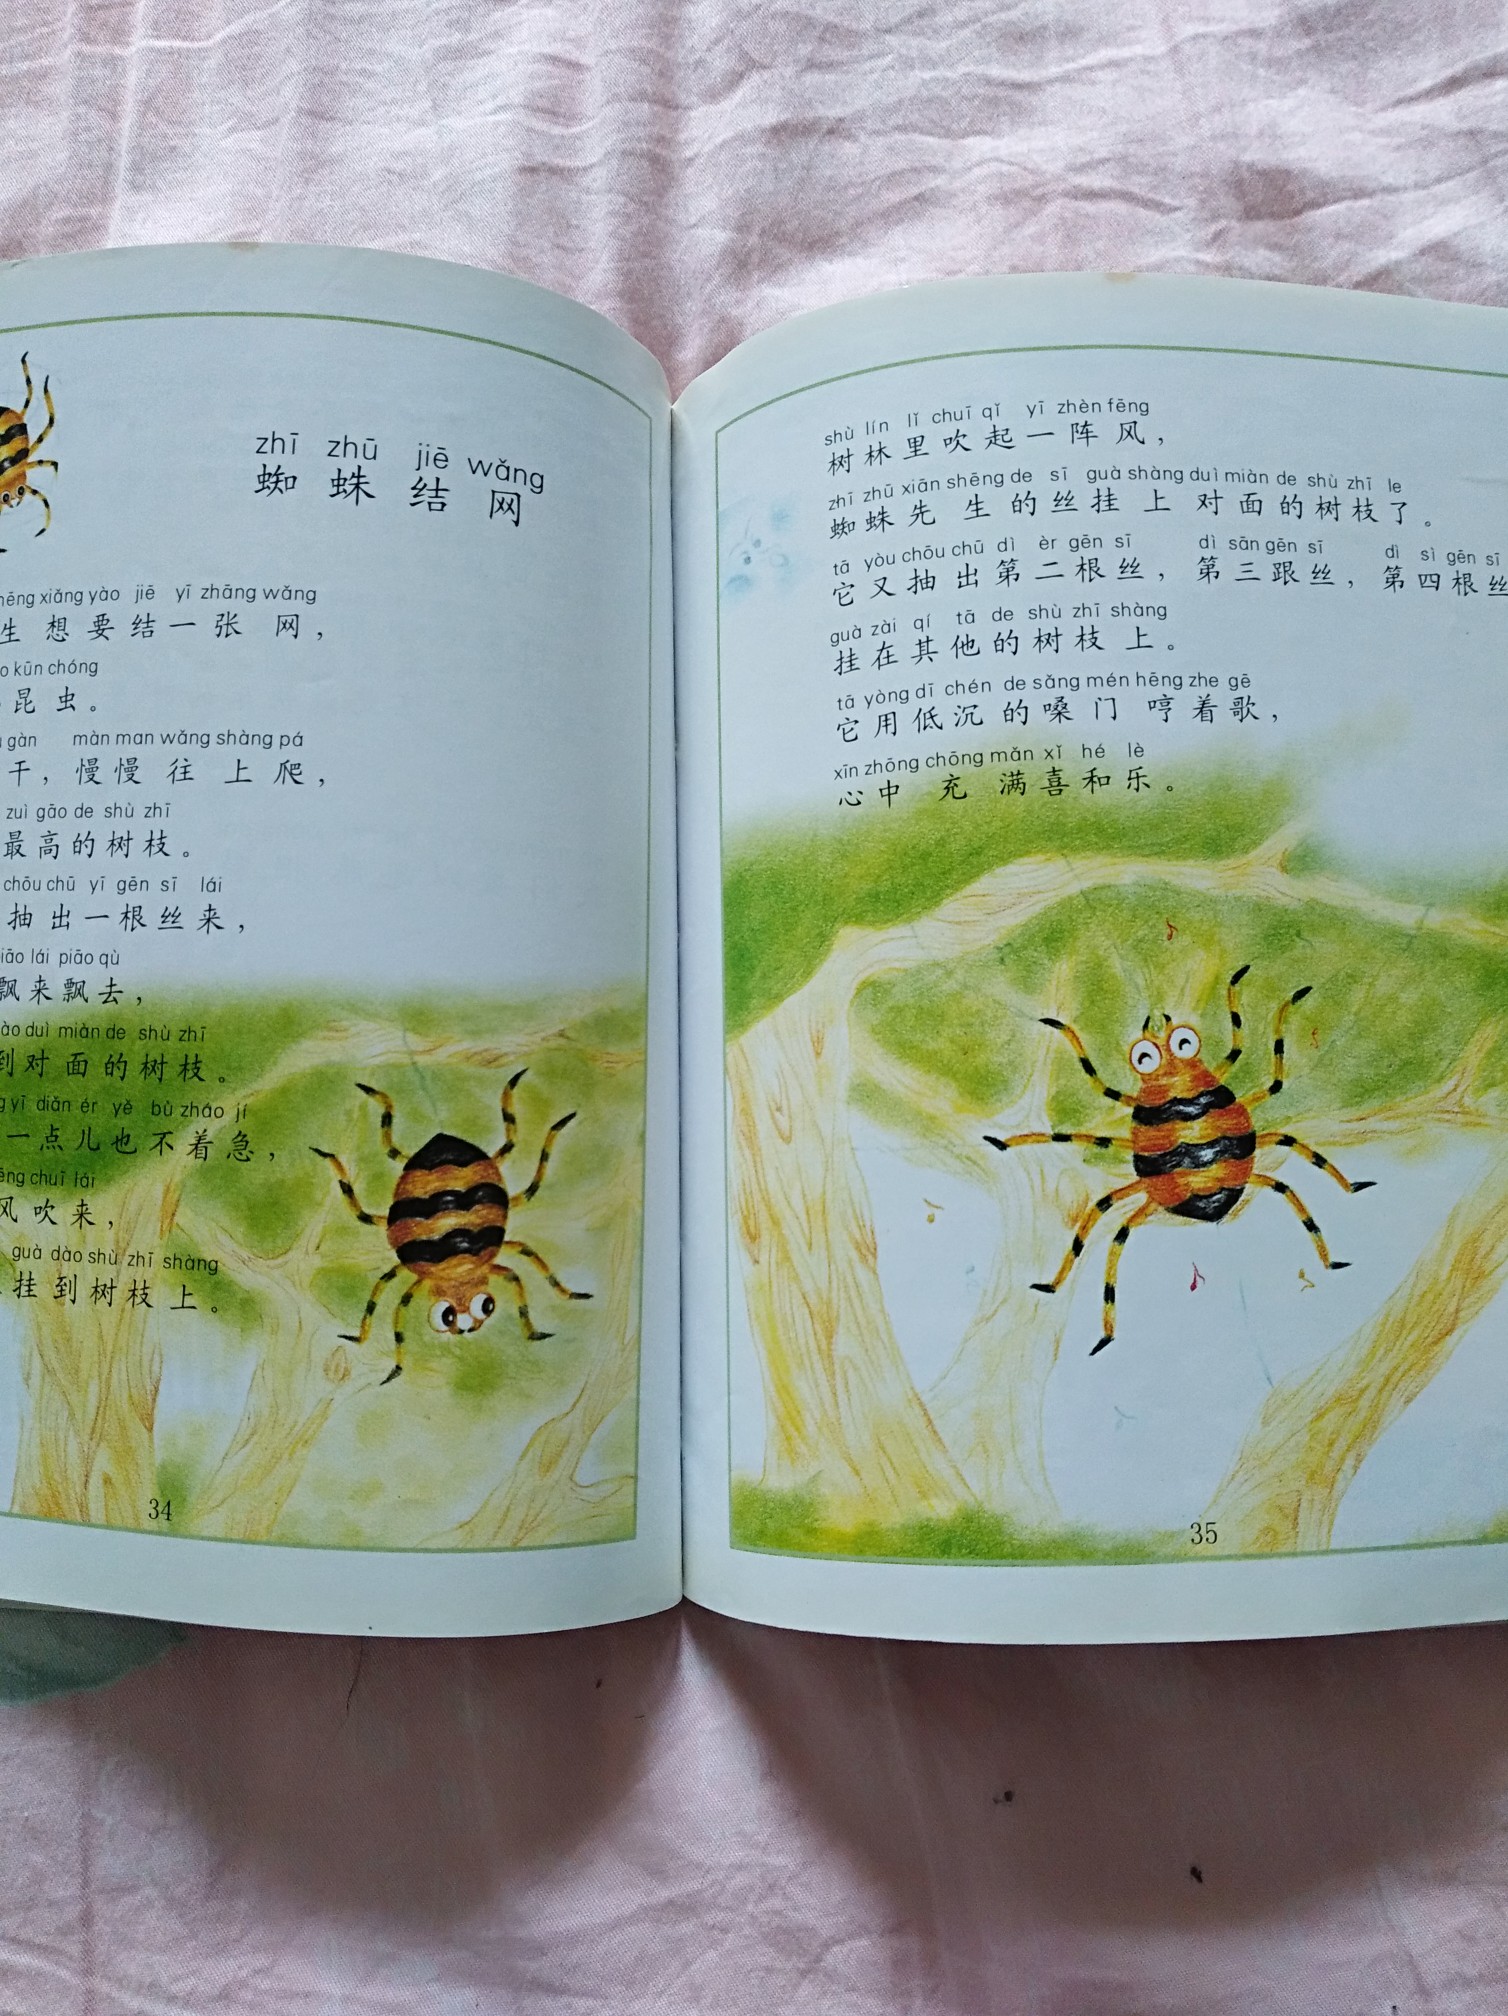 zhī zhū jiē wǎng
蜘蛛结网
xiǎng yào jiē yī zhāng wǎng
生想要结一张网，
kūn chóng
昆虫。
gàn màn man wǎng shàng pá
干，慢慢往上爬，
zuì gāo de shù zhī
最高的树枝。
chōu chū yī gēn sī lái
抽出一根丝来，
piāo lái piāo qù
飘来飘去，
duì miàn de shù zhī
到对面的树枝。
yī diǎn ér yě bù zháo jí
一点儿也不着急，
chuī lái
风吹来，
guà dào shù zhī shàng
挂到树枝上。
34
shù lín lǐ chuī qǐ yī zhèn fēng
树林里吹起一阵风，
zhī zhū xiān shēng de sī guà shàng duì miàn de shù zhī le
蜘蛛先生的丝挂上对面的树枝了。
tā yòu chōu chū dì èr gēn sī dì sān gēn sī dì sì gēn sī
它又抽出第二根丝，第三跟丝，第四根丝
guà zài qí tā de shù zhī shàng
挂在其他的树枝上。
tā yòng dī chén de sǎng mén hēng zhe gē
它用低沉的嗓门哼着歌，
xīn zhōng chōng mǎn xǐ hé lè
心中充满喜和乐。
35